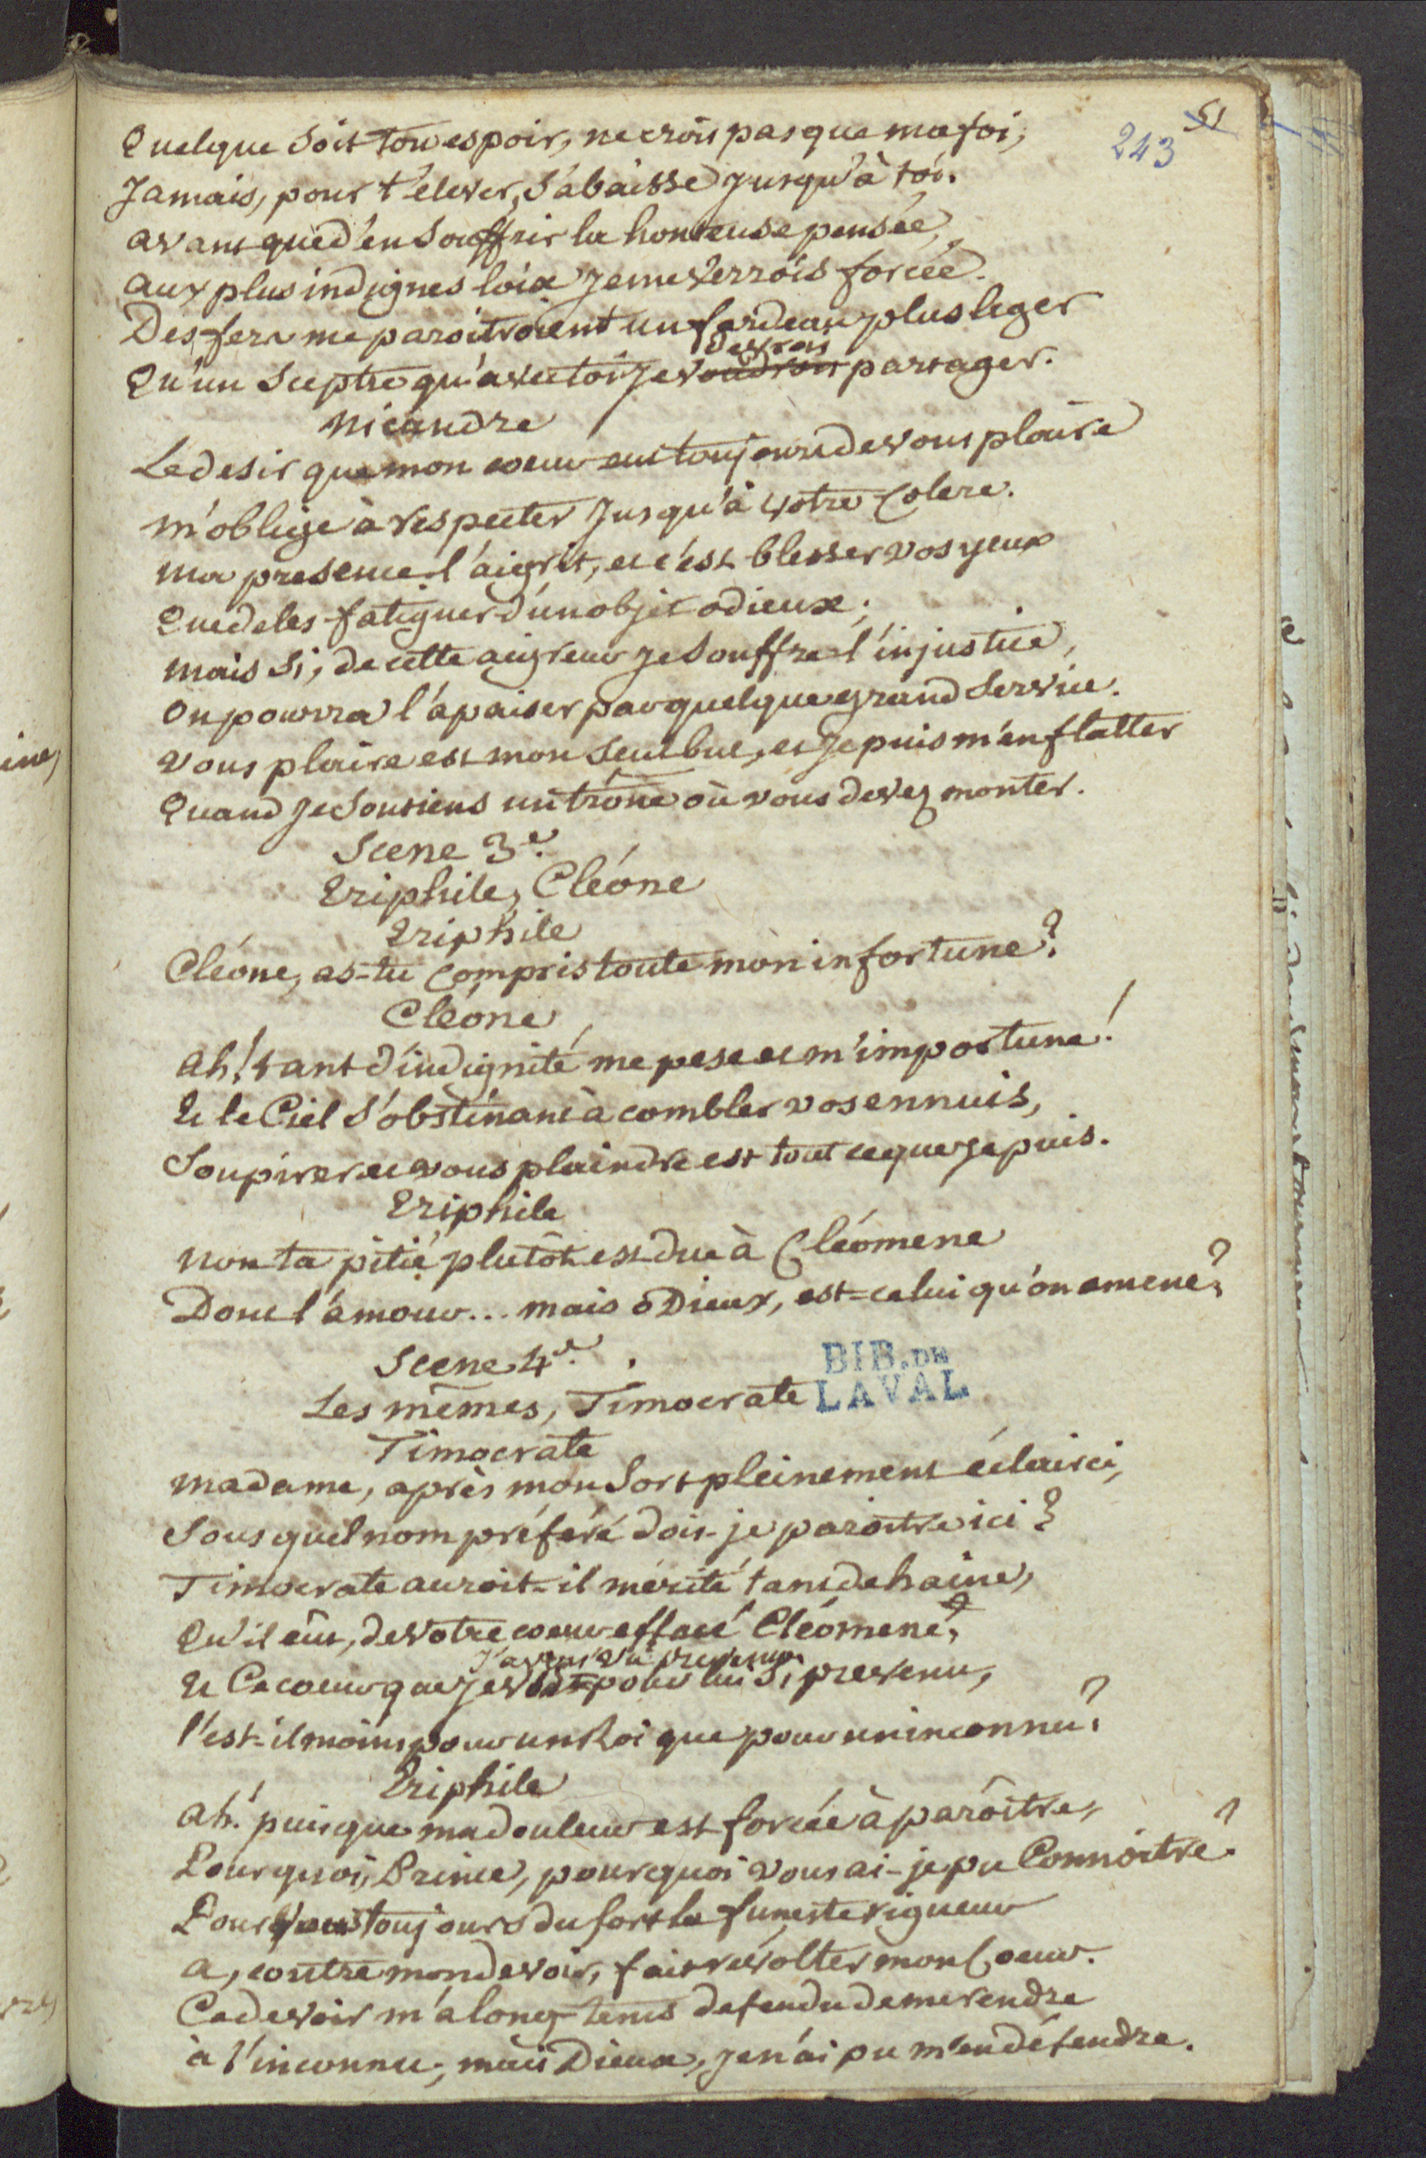 243
51
Quelque soit ton espoir, ne crois pas que ma foi,
Jamais, pour t'élever, s'abaisse jusqu'à toi.
avant que d'en souffrir la honteuse pensée,
aux plus indignes loix je me verrois forcée.
Des fers me paroitroient un fardeau plus leger
devrois
Qu'un Sceptre qu'avec toi je voudrois partager.
Nicandre
Le desir que mon coeur eut toujours de vous plaire
m'oblige à respecter jusqu'à votre Colere.
ma presence l'aigrit, et c'est blesser vos yeux
Que de les fatiguer d'un objet odieux;
mais si, de cette aigreur je souffre l'injustice,
on pourra l'apaiser par quelque grand service.
vous plaire est mon seul but, et je puis m'en flatter
Quand je soutiens un trône où vous devez monter.
Scene 3e.
Eriphile, Cléone
Eriphile
Cléone, as-tu compris toute mon infortune?
Cléone
ah! tant d'indignité me pese et m'importune!
Et le Ciel s'obstinant à combler vos ennuis,
Soupirer et vous plaindre est tout ce que je puis.
Eriphile
non ta pitié plutôt est due à Cléomene
Dont l'amour... mais ô Dieux, est-ce lui qu'on amene?
Scene 4e.
Les mêmes, Timocrate
BIB. DE
LAVAL
Timocrate
madame, après mon sort pleinement éclairci,
Sous quel nom préféré dois-je paroitre ici?
Timocrate auroit-il mérité tant de haine,
Qu'il eût, de votre coeur effacé Cléomene?
j'avois vu prevenu
Et Ce coeur que je vis pour lui si prevenu,
l'est-il moins pour un Roi que pour un inconnu?
Eriphile
ah! puisque ma douleur est forcée à parôitre,
Pourquoi, Prince, pourquoi vous ai-je pu Connoitre?
Pour vous toujours du sort la funeste rigueur
a, contre mon devoir, fait révolter mon Coeur.
Ce devoir m'a long-tems defendu de me rendre
à l'inconnu, mais Dieux, je n'ai pu m'en défendre.